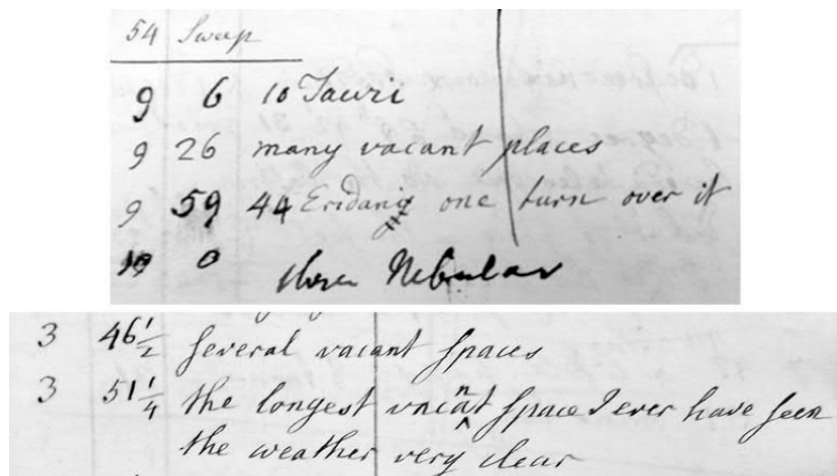 54 Sweep
9 6 10 Tauri
9 26 many vacant places
9 59 44 Eridani one turn over it
10 0 Nebular
3 46 1/2 several vacant spaces
3 51 1/4 the longest vacant space I ever have seen
the weather very clear